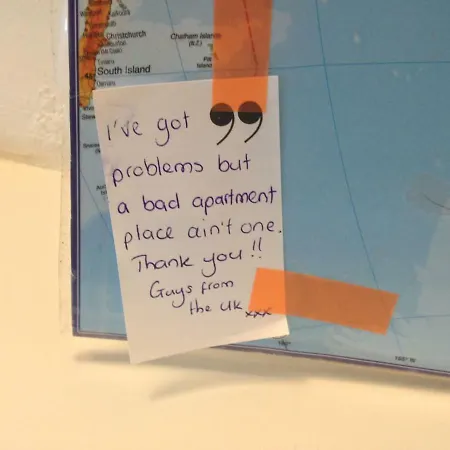 Christchurch
Chatham Islands
(N.Z.)
Pitt
Island
South Island
I've got
99
problems but
a bad apartment
place ain't one.
Thank you!!
Guys from
the UK xxx